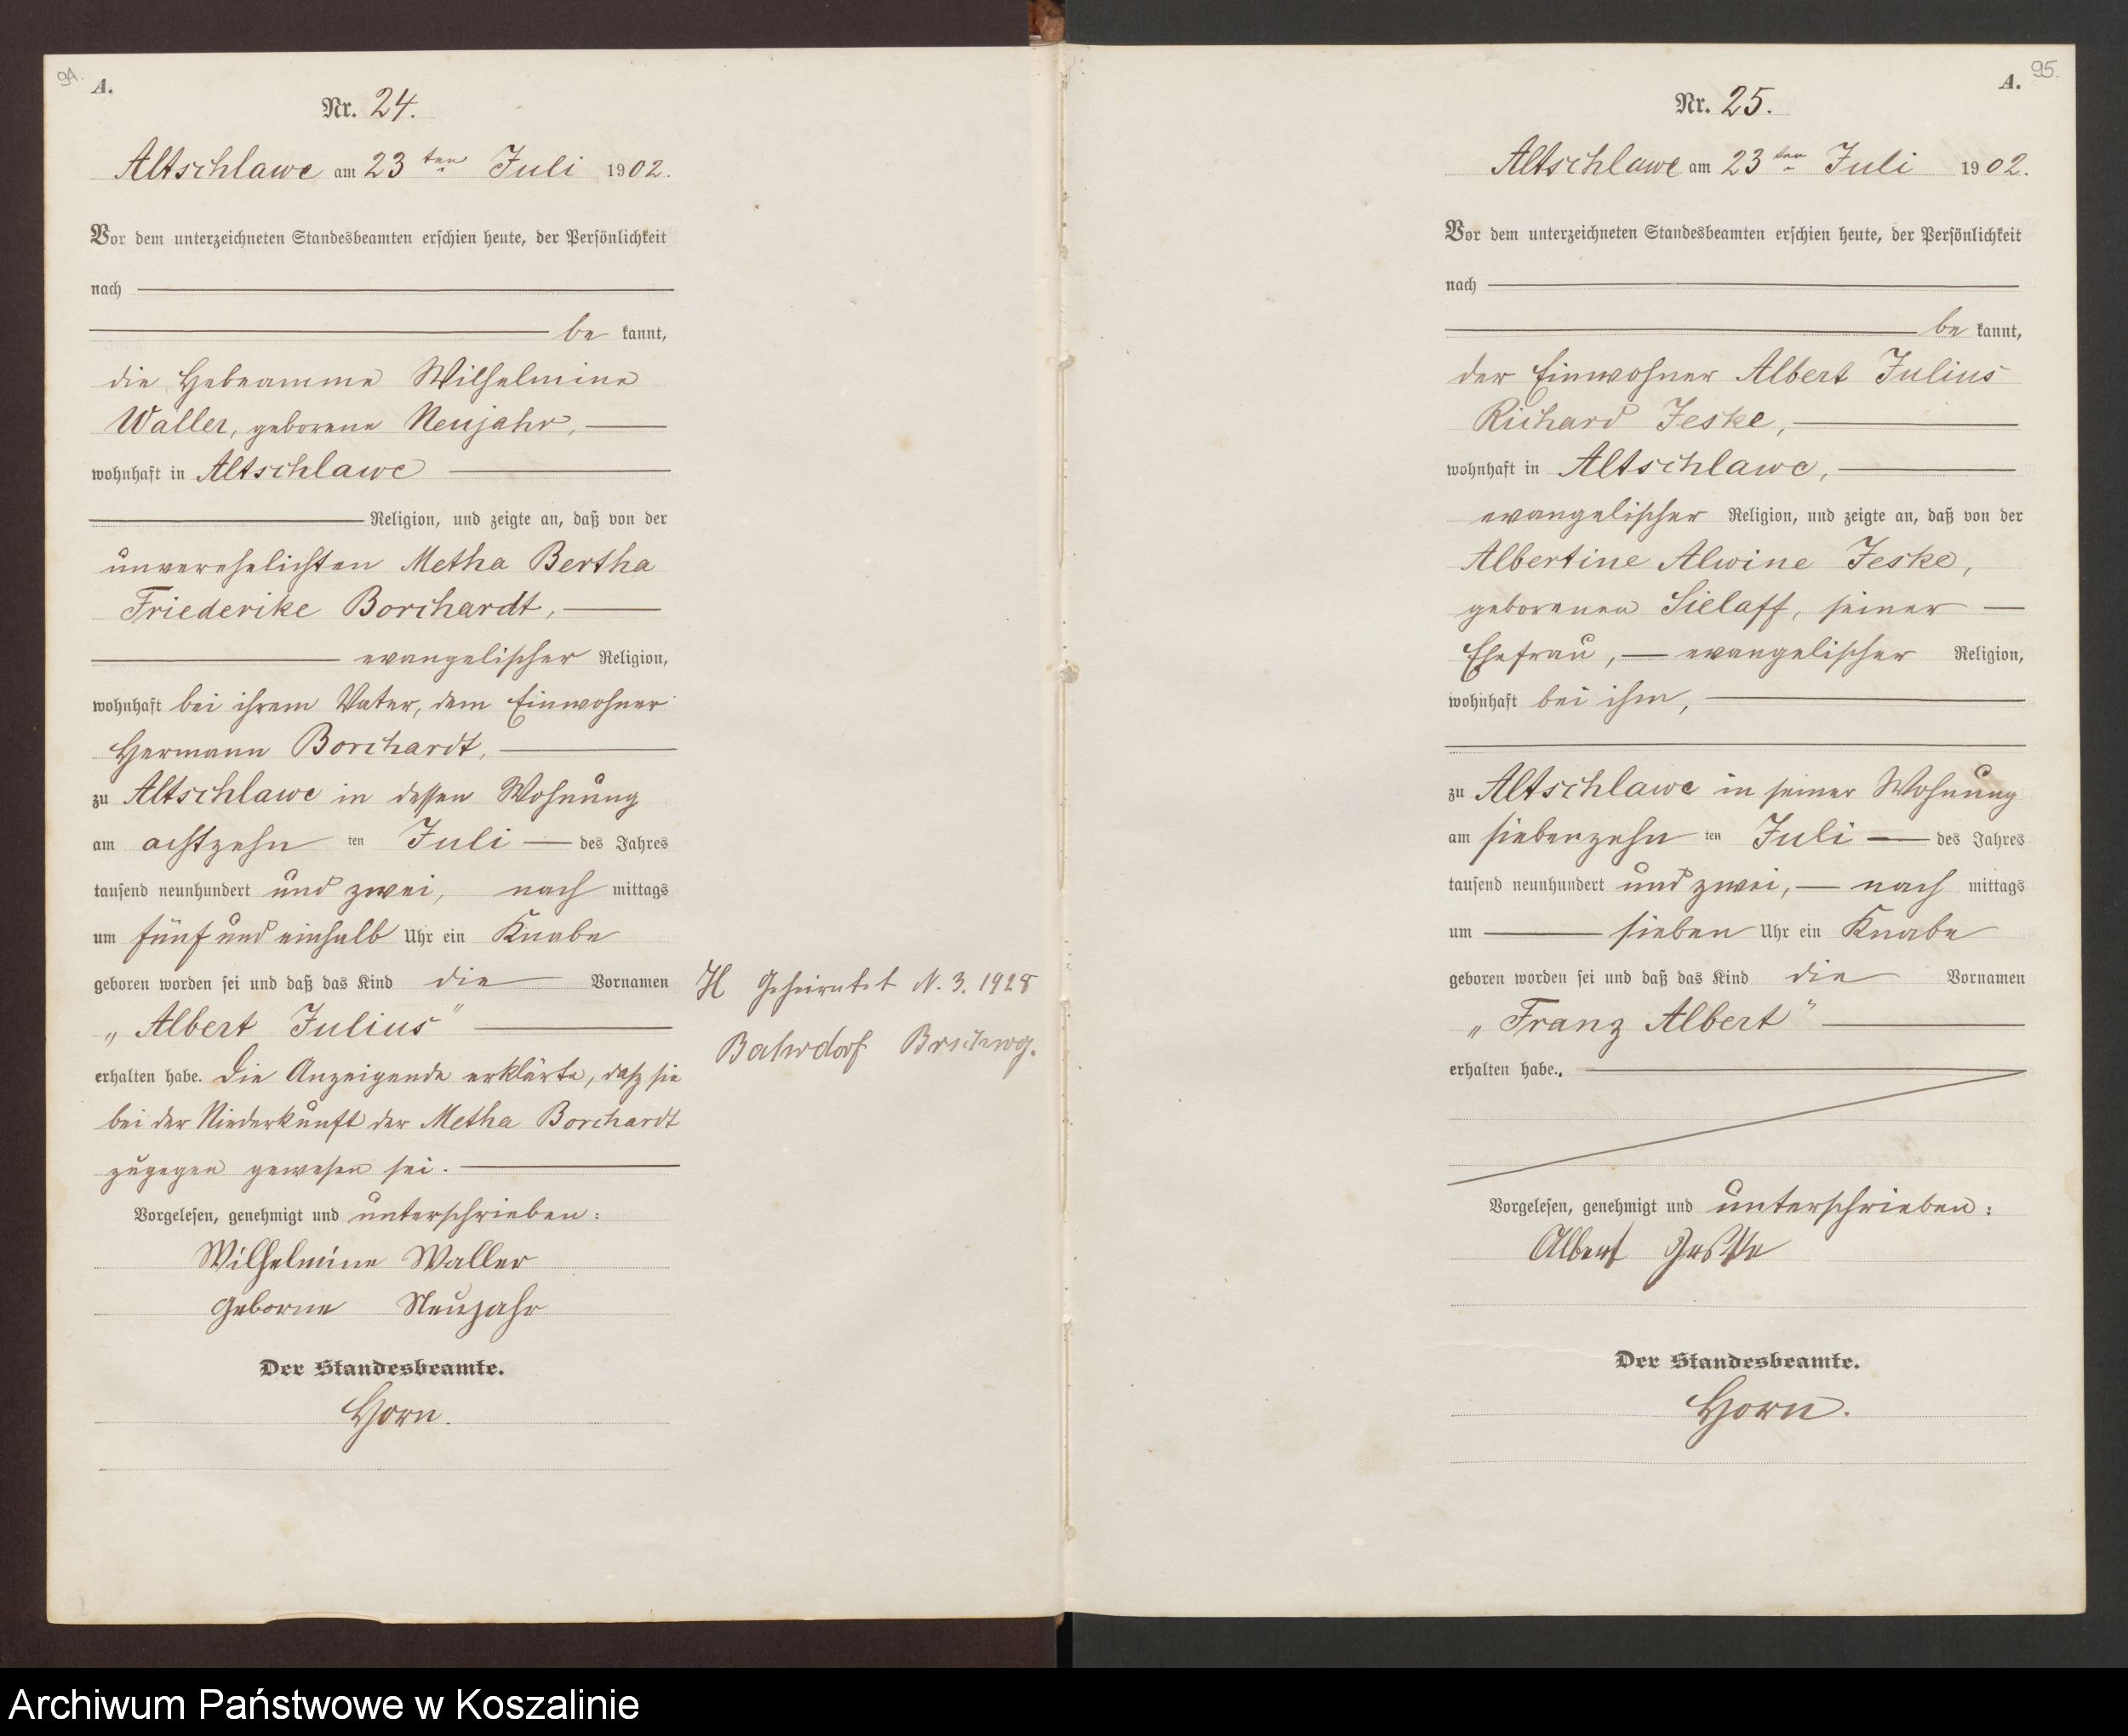 94.
A.
Nr. 24.
Altschlawe am 23ten Juli 1902.
Vor dem unterzeichneten Standesbeamten erschien heute, der Persönlichkeit
nach
be kannt,
die Hebeamme Wilhelmine
Waller, geborene Neujahr,
wohnhaft in Altschlawe
Religion, und zeigte an, daß von der
unverehelichten Metha Bertha
Friederike Borchardt,
evangelischer Religion,
wohnhaft bei ihrem Vater, dem Einwohner
Hermann Borchardt,
zu Altschlawe in dessen Wohnung
am achtzehn ten Juli des Jahres
tausend neunhundert und zwei, nach mittags
um fünf und einhalb Uhr ein Knabe
geboren worden sei und daß das Kind die Vornamen
„Albert Julius"
erhalten habe. Die Anzeigende erklärte, daß sie
bei der Niederkunft der Metha Borchardt
zugegen gewesen sei.
Vorgelesen, genehmigt und unterschrieben:
Wilhelmine Waller
Geborne Neujahr
Der Standesbeamte.
Horn.
H Geheiratet N. 3. 1928
Bahrdorf Brschwg.
95.
A.
Nr. 25.
Altschlawe am 23ten Juli 1902.
Vor dem unterzeichneten Standesbeamten erschien heute, der Persönlichkeit
nach
be kannt,
der Einwohner Albert Julius
Richard Jeske,
wohnhaft in Altschlawe,
evangelischer Religion, und zeigte an, daß von der
Albertine Alwine Jeske,
geborenen Sielaff, seiner
Ehefrau, evangelischer Religion,
wohnhaft bei ihm,
zu Altschlawe in seiner Wohnung
am siebenzehn ten Juli des Jahres
tausend neunhundert und zwei, nach mittags
um sieben Uhr ein Knabe
geboren worden sei und daß das Kind die Vornamen
„Franz Albert"
erhalten habe.
Vorgelesen, genehmigt und unterschrieben:
Albert Jeske
Der Standesbeamte.
Horn.
Archiwum Państwowe w Koszalinie